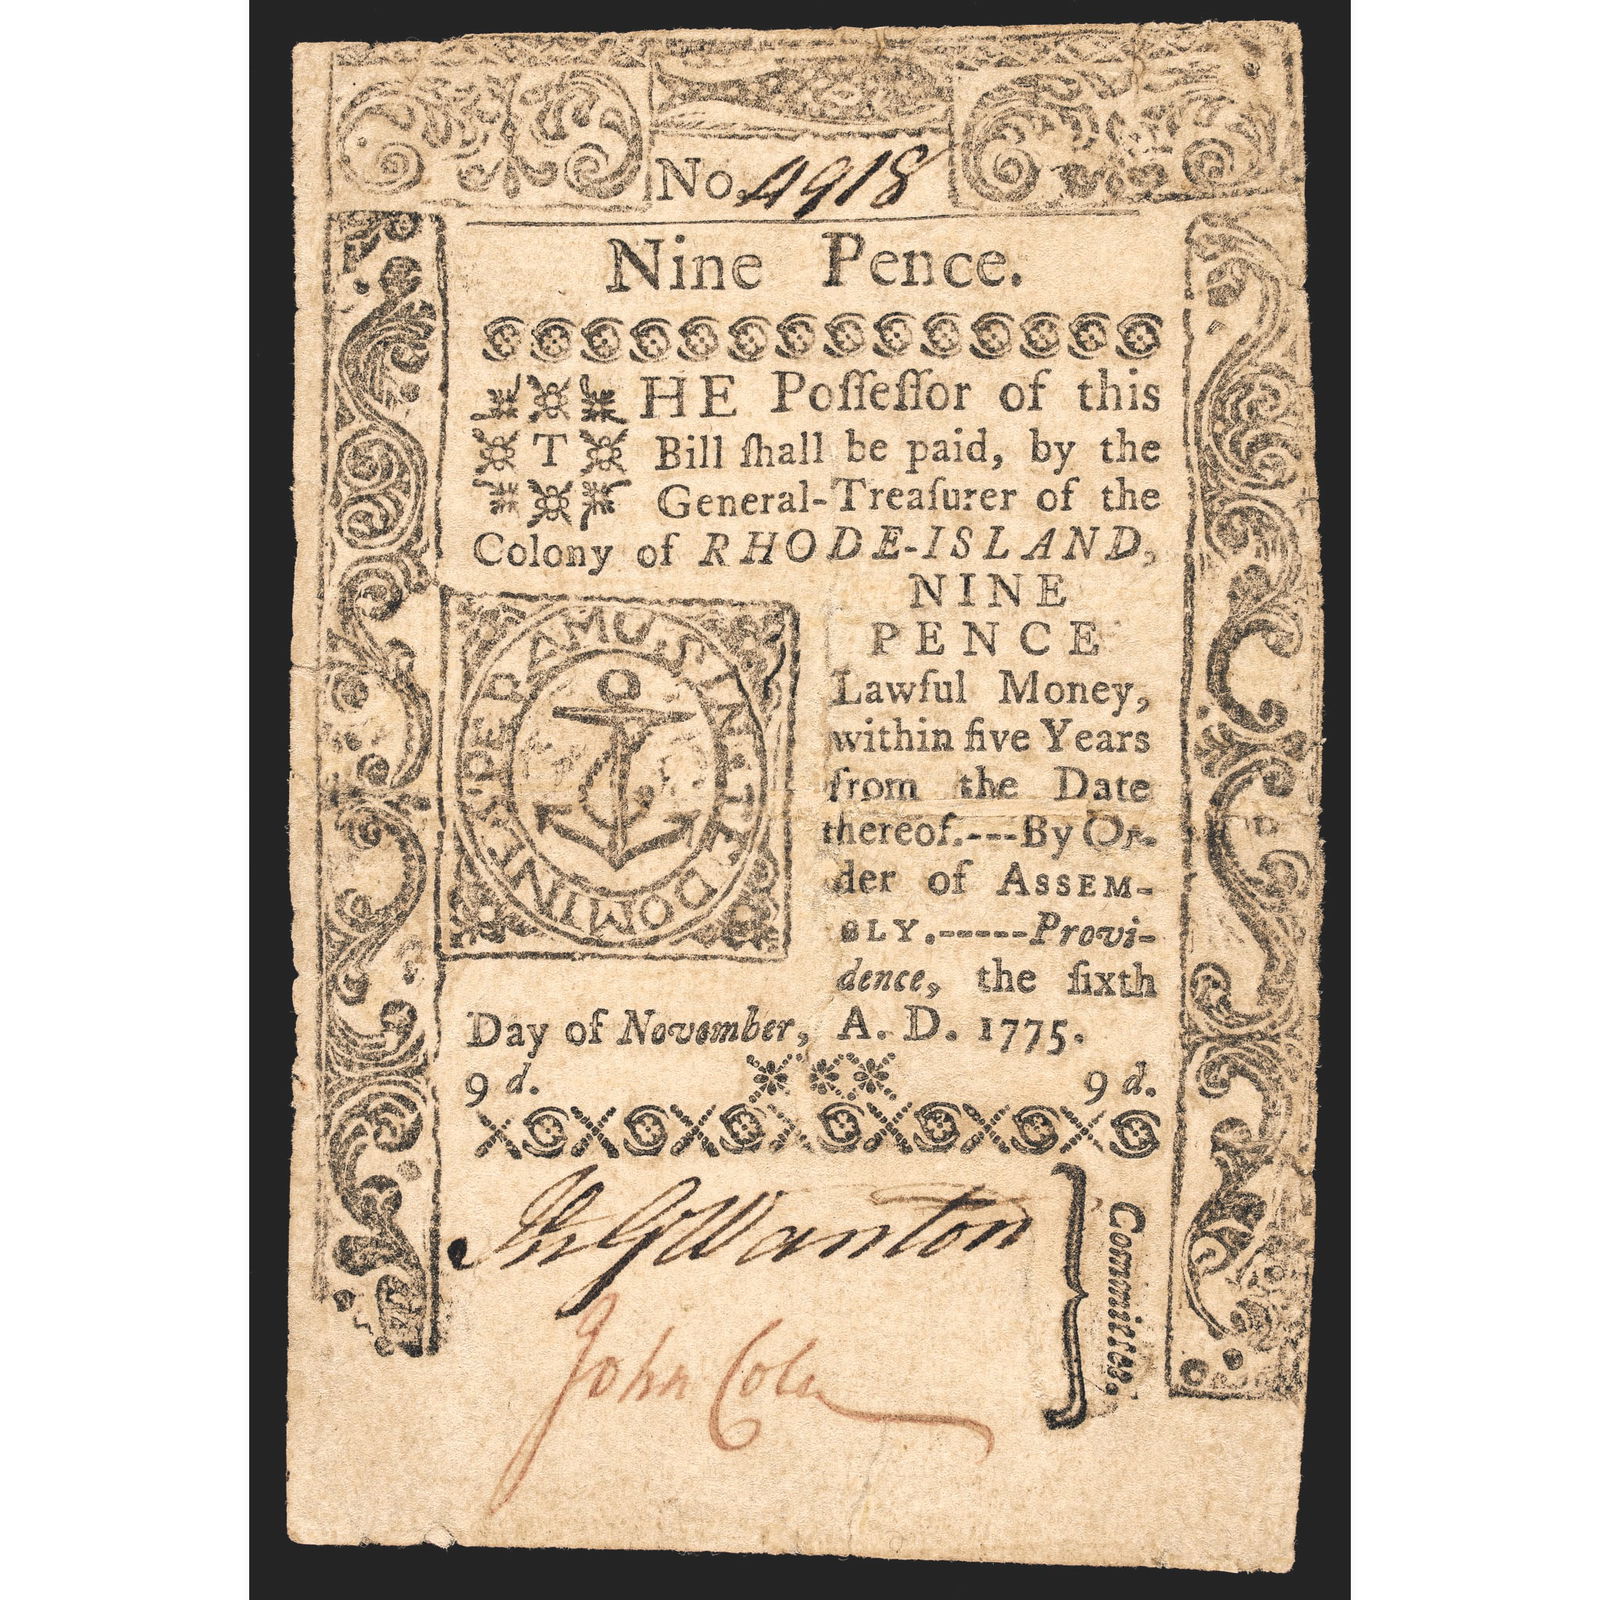 No. 4918
Nine Pence.
THE Poſſeſſor of this
Bill ſhall be paid, by the
General-Treaſurer of the
Colony of RHODE-ISLAND,
NINE
PENCE
Lawful Money,
within five Years
from the Date
thereof.---By Or-
der of ASSEM-
BLY.-----Provi-
dence, the ſixth
Day of November, A. D. 1775.
IN TE DOMINE SPERAMUS
9 d. 9 d.
Jn G Wanton
John Cole
Committee.